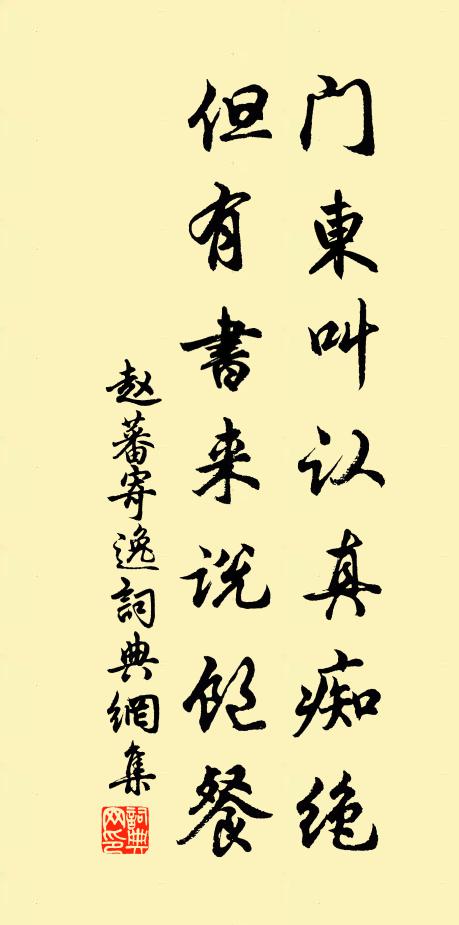 门東叫认真痴绝
但有書来说饱餐
赵蕃寄逸詞典網集
詞典网印